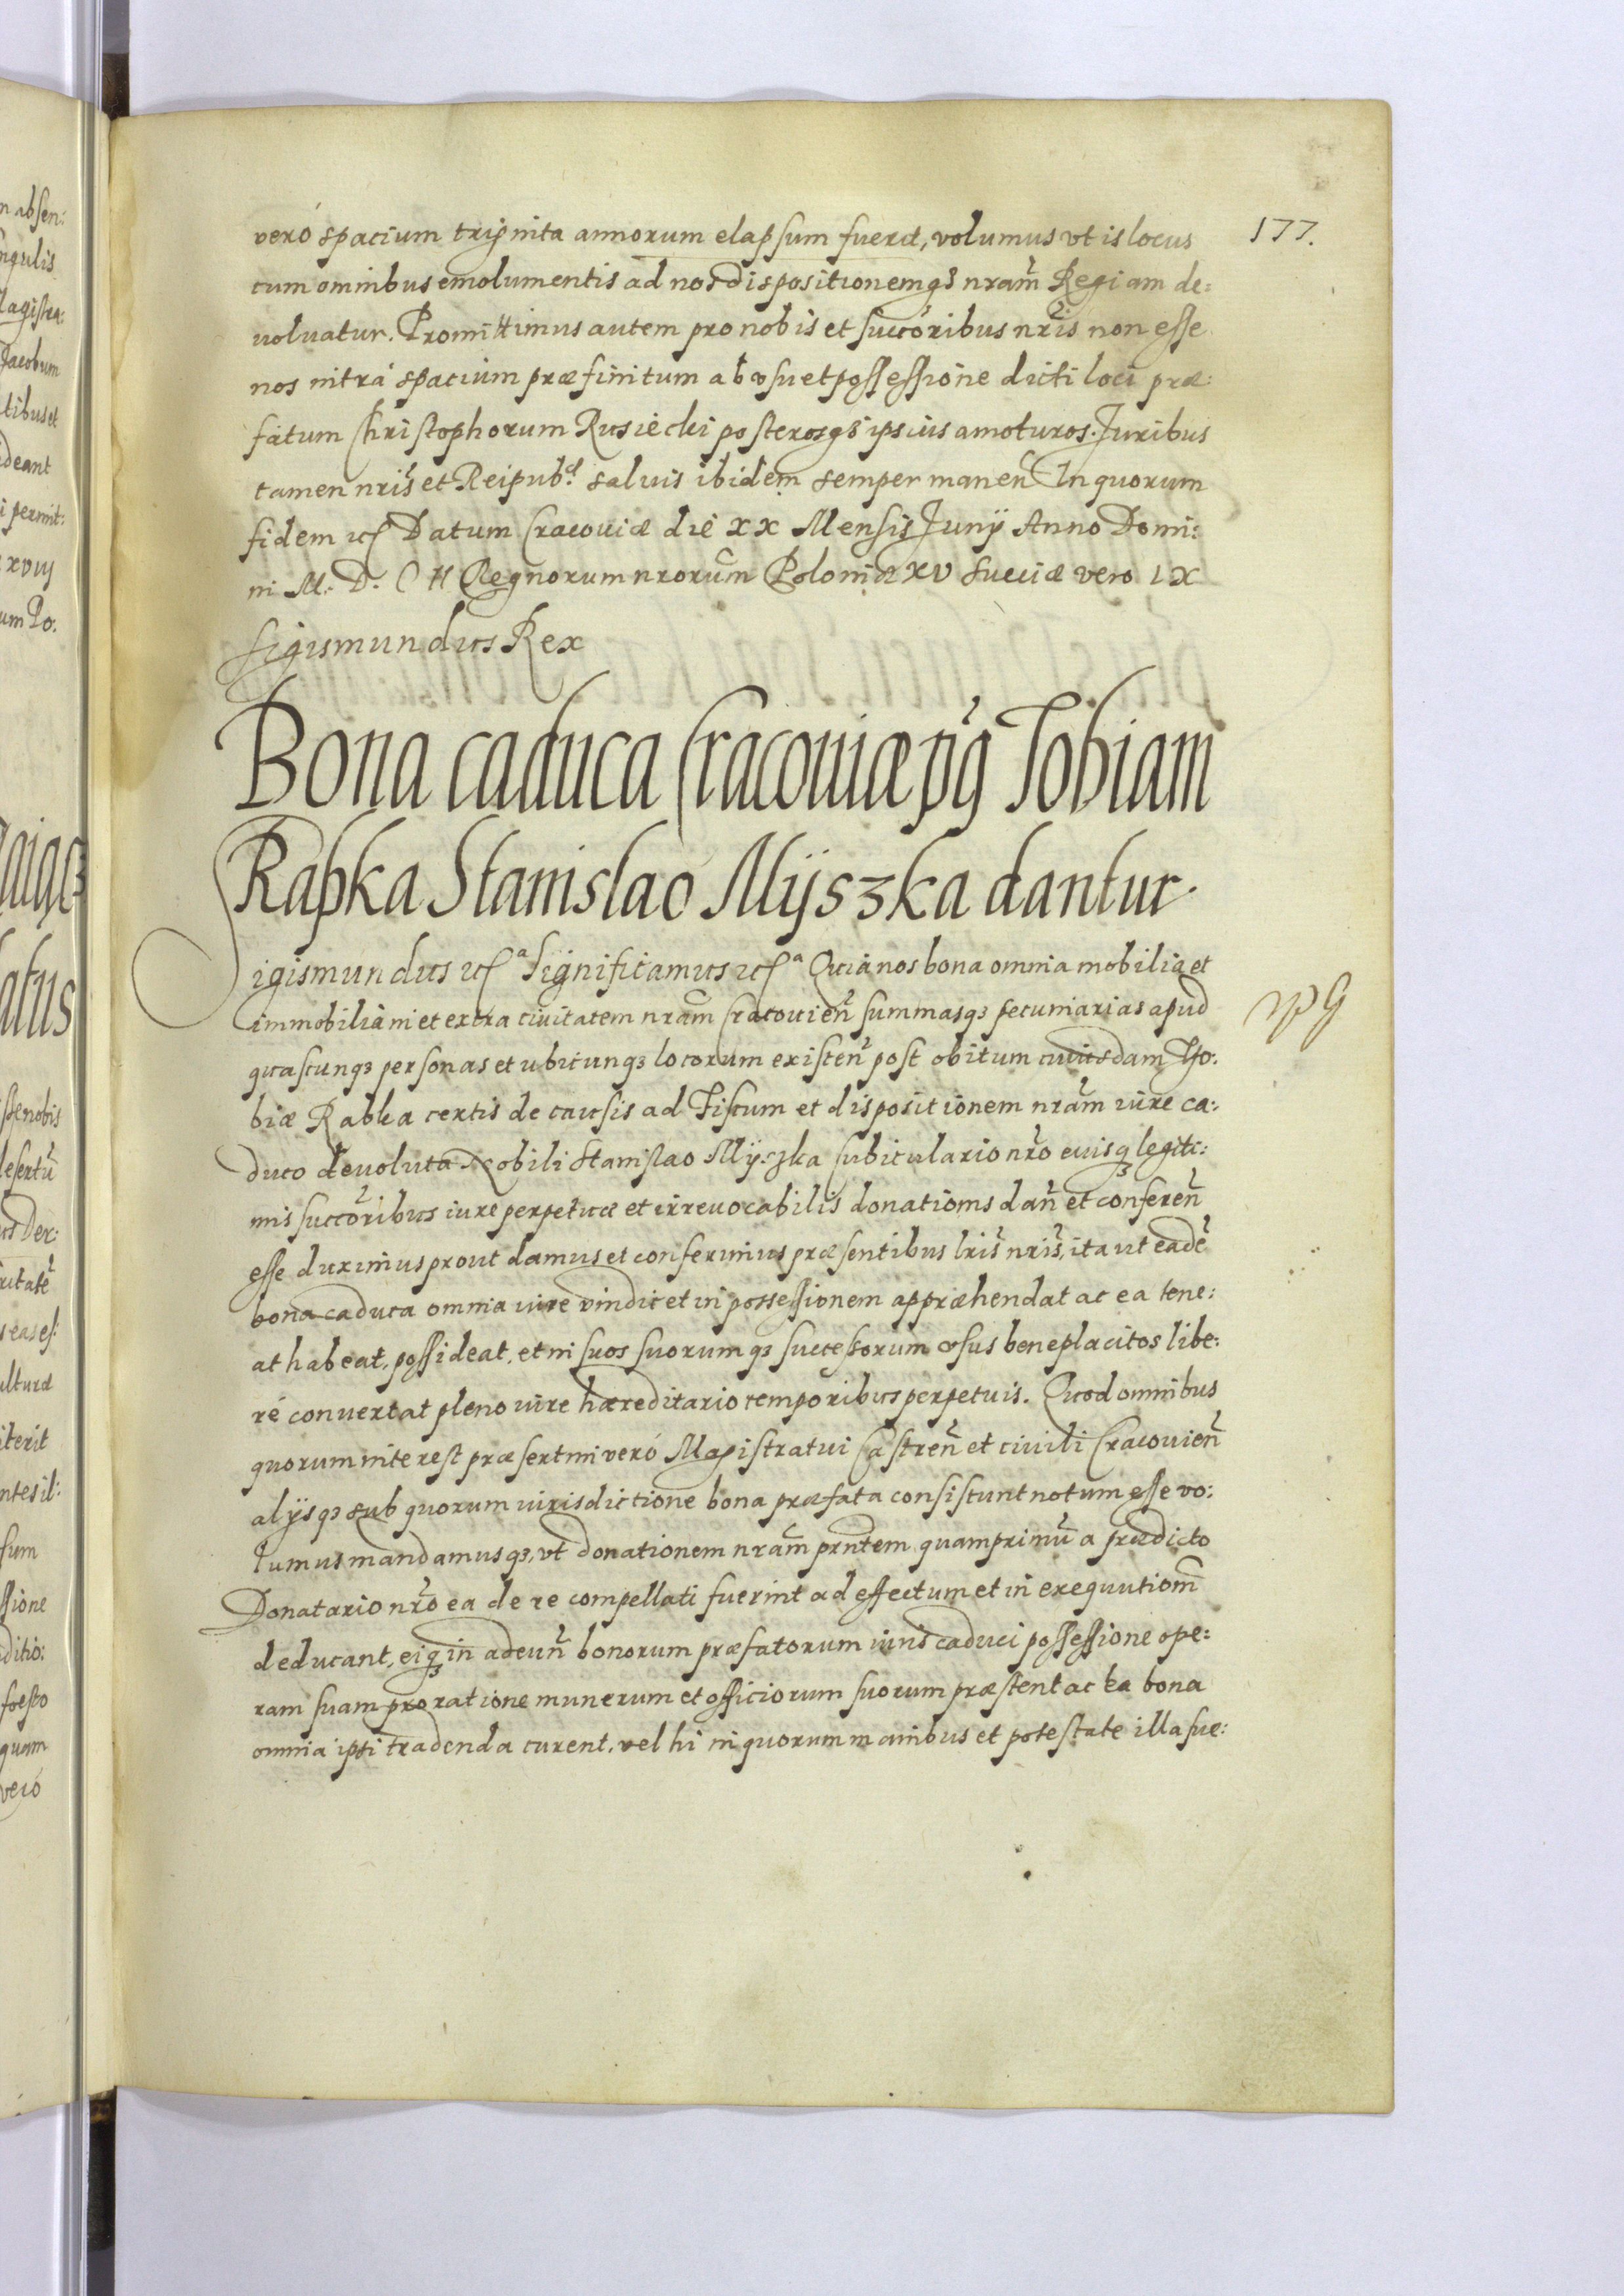 177.
veró spacium trignita annorum elapsum fuerit, volumus vt is locus
cum omnibus emolumentis ad nos dispositionemq3 nram̃ Regiam de:
uoluatur. Promittimus autem pro nobis et succóribus nris̃ non esse
nos intrá spacium præfinitum ab vsu et possessione dicti loci præ:
fatum Christophorum Rusiecki posterosq3 ipsius amoturos. Juribus
tamen nris̃ et Reipub: saluis ibidem semper maneñ In quorum
fidem etc Datum Cracouiæ die XX Mensis Junÿ Anno Domi:
ni M. D. C II Regnorum nrorum̃ Poloniæ XV Sueciæ vero IX
Sigismundus Rex
Bona caduca Cracouiæ p9 Tobiam
Rapka Stanislao Mÿszka dantur.
Sigismundus etc.a Significamus etc.a Quia nos bona omnia mobilia et
immobilia in et extra ciuitatem nram̃ Cracouieñ summasq3 pecuniarias apud
quascunq3 personas et ubicunq3 locorum existeñ post obitum cuiusdam Tho:
biæ Rabka certis de causis ad Fiscum et dispositionem nram̃ iure ca:
duco deuoluta Nobili Stanislao Mÿszka Cubiculario nrõ eiusq3 legiti:
mis succõribus iure perpetuæ et irreuocabilis donationis dañ et confereñ
esse duximus prout damus et conferimus præsentibus lris̃ nris̃, ita ut eadẽ
bona caduca omnia iure vindicet in possessionem appræhendat ac ea tene:
at habeat, possideat, et in suos suorumq3 successorum vsus beneplacitos libe:
ré conuertat pleno iure hæreditario temporibus perpetuis. Quod omnibus
quorum interest præsertim veró Magistratui Castreñ et ciuili Cracouieñ
alÿsq3 sub quorum iurisdictione bona præfata consistunt notum esse vo:
lumus mandamusq3, vt donationem nram̃ prñtem quamprimũ a prædicto
Donatario nrõ ea de re compellati fuerint ad effectum et in exequutionem̃
deducant, eiq3 in adeuñ bonorum præfatorum iuris caduci possessione ope:
ram suam pro ratione munerum et officiorum suorum præstent ac ea bona
omnia ipsi tradenda curent, vel hi in quorum manibus et potestate illa fue: